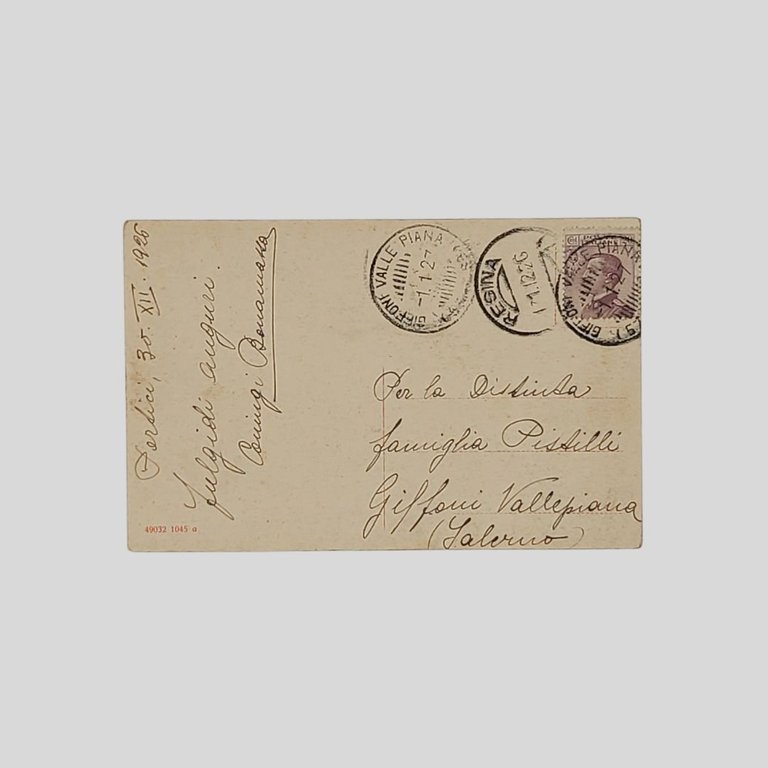 Portici, 30. XII. 1926
fulgidi auguri.
Coniugi Bonamassa
GIFFONI VALLE PIANA
1.1.27
RESINA
GIFFONI VALLE PIANA
Per la Distinta
famiglia Pistilli
Giffoni Vallepiana
(Salerno)
49032 1045 a